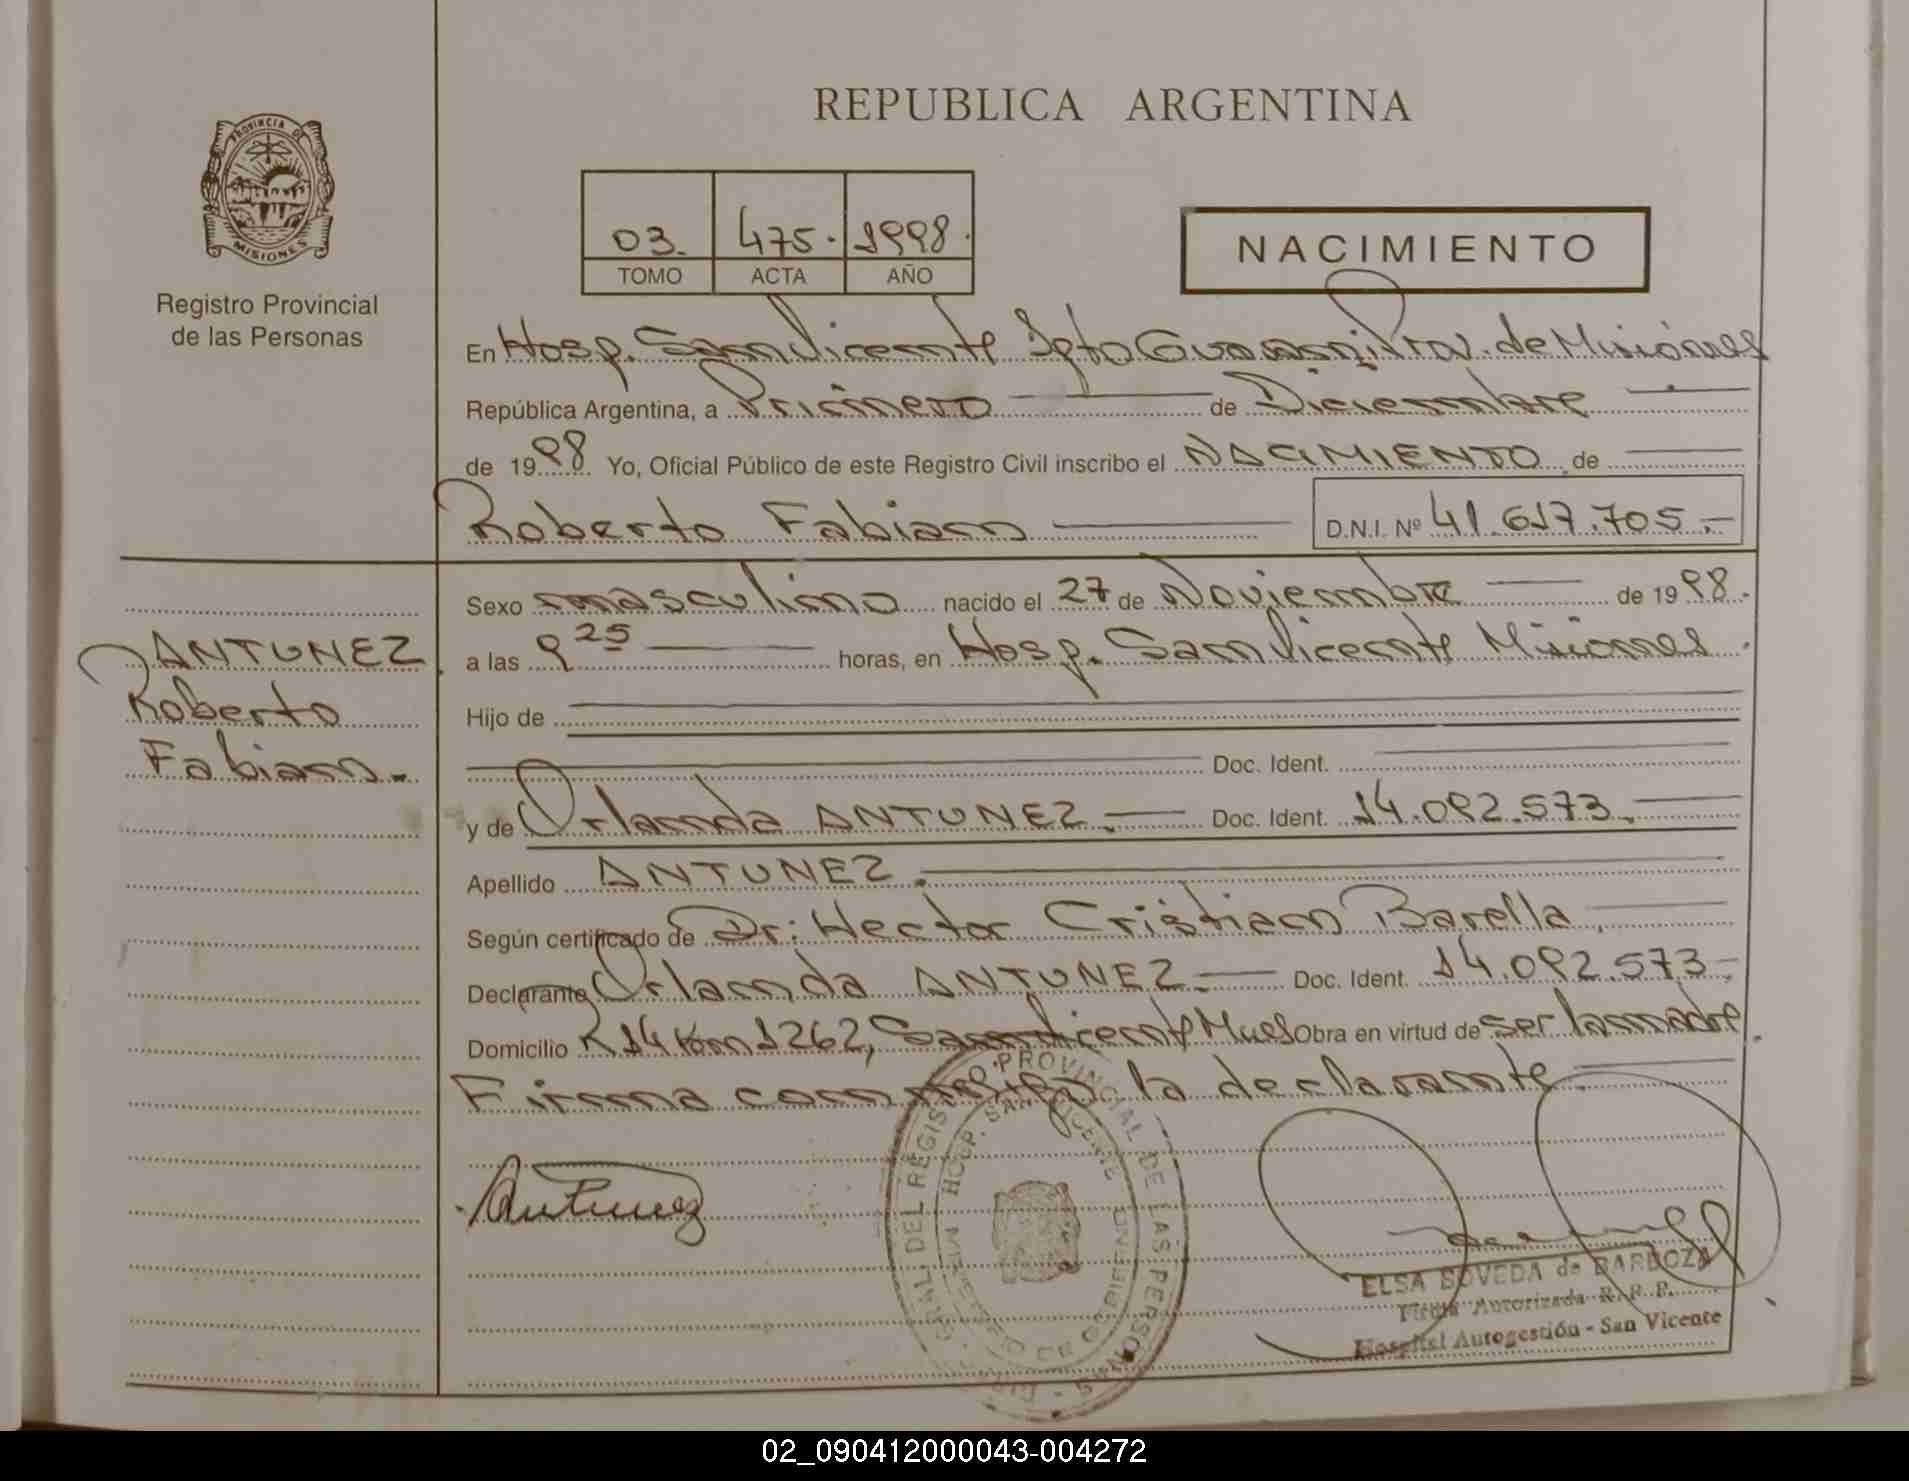 REPUBLICA ARGENTINA
PROVINCIA DE
MISIONES
Registro Provincial
de las Personas
03. 475. 1998.
TOMO ACTA AÑO
NACIMIENTO
En Hosp. San Vicente Dpto Guarani Prov. de Misiones
República Argentina, a Primero de Diciembre
de 1998 Yo, Oficial Público de este Registro Civil inscribo el NACIMIENTO de
Roberto Fabian D.N.I. Nº 41.617.705.-
ANTUNEZ
Roberto
Fabian.-
Sexo masculino nacido el 27 de Noviembre de 1998.
a las 9 25 horas, en Hosp. San Vicente Misiones.
Hijo de
Doc. Ident.
y de Orlanda ANTUNEZ.- Doc. Ident. 14.092.573.-
Apellido ANTUNEZ.
Según certificado de Dr: Hector Cristian Barella,
Declarante Orlanda ANTUNEZ.- Doc. Ident. 14.092.573-
Domicilio R 14 Km 1262, San Vicente Mnes Obra en virtud de ser la madre.
Firma con la declarante.
Antunez
GRAL. DEL REGISTRO PROVINCIAL DE LAS PERSONAS - DIR.
HOSP. SAN VICENTE
ELSA SOVEDA de BARBOZA
Firma Autorizada R.P.P.
Hospital Autogestión - San Vicente
02_090412000043-004272